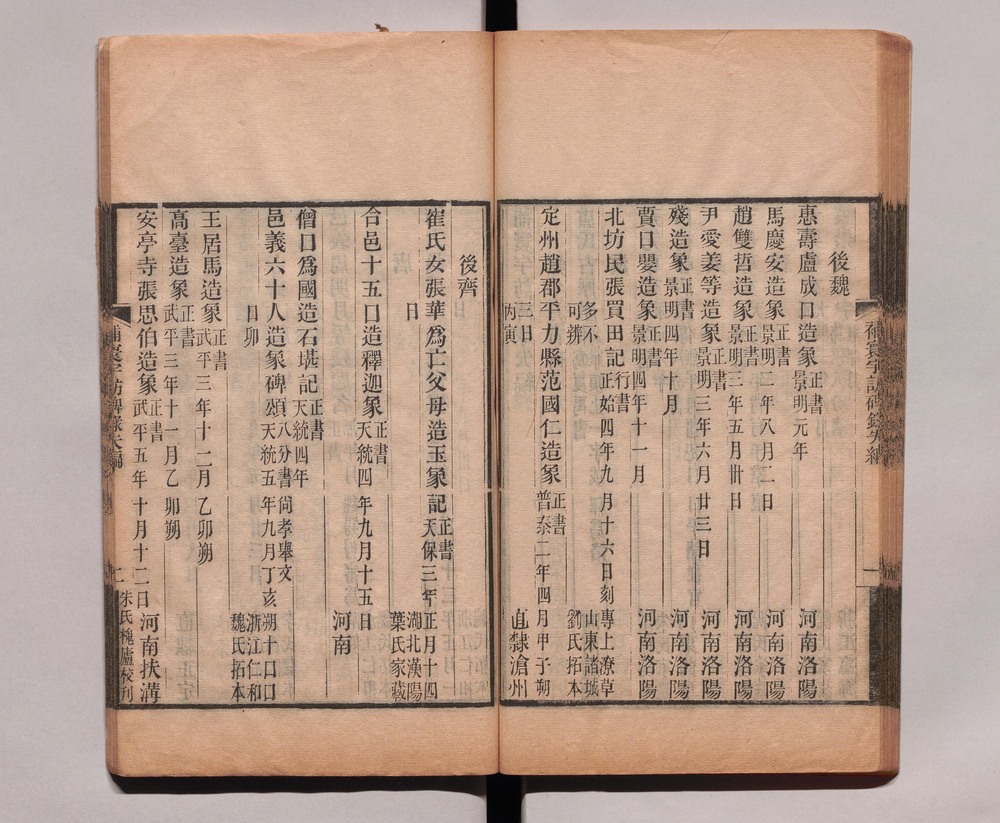 後魏
惠壽盧成口造象 正書 景明元年 河南洛陽
馬慶安造象 正書 景明二年八月二日 河南洛陽
趙雙哲造象 正書 景明三年五月卅日 河南洛陽
尹愛姜等造象 正書 景明三年六月廿三日 河南洛陽
殘造象 正書 景明四年十月 河南洛陽
賈口嬰造象 正書 景明四年十一月 河南洛陽
北坊民張買田記 行書 正始四年九月十六日刻 專上潦草
多不可辨 山東諸城劉氏拓本
定州趙郡平力縣范國仁造象 正書 普泰二年四月甲子朔
三日丙寅 直隸滄州
後齊
崔氏女張華爲亡父母造玉象記 正書 天保三年正月十四
日 湖北漢陽葉氏家藏
合邑十五口造釋迦象 正書 天統四年九月十五日
僧口爲國造石堪記 正書 天統四年 河南
邑義六十人造象碑頌 八分書 尙孝舉文 天統五年九月丁亥朔十口口
日卯 浙江仁和魏氏拓本
王居馬造象 正書 武平三年十二月乙卯朔
高臺造象 正書 武平三年十一月乙卯朔
安亭寺張思伯造象 正書 武平五年十月十二日 河南扶溝
補寰宇訪碑錄失編 二 朱氏槐廬校刊